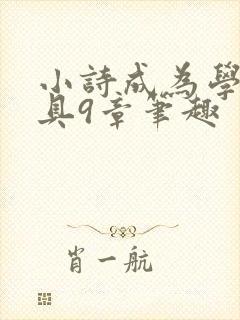 小詩成為學
具9章筆趣
肖一航